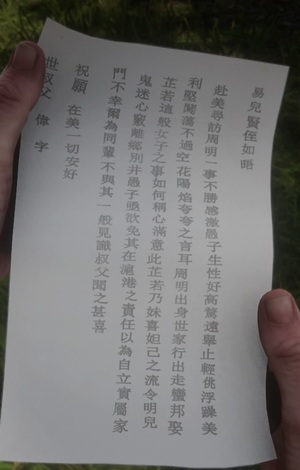 易兒賢侄如晤
赴美尋訪周明一事不勝感激愚子生性好高騖遠舉止輕佻浮躁美
利堅闐蕩不過空花陽焰夸夸之言耳周明出身世家行出走蠻邦娶
芷若這般女子之事如何稱心滿意此芷若乃妹喜妲己之流令明兒
鬼迷心竅離鄉別井愚子亟欲免其在滬港之責任以為自立實屬家
門不幸爾為同輩不與其一般見識叔父聞之甚喜
祝願 在美一切安好
世叔父 偉 字